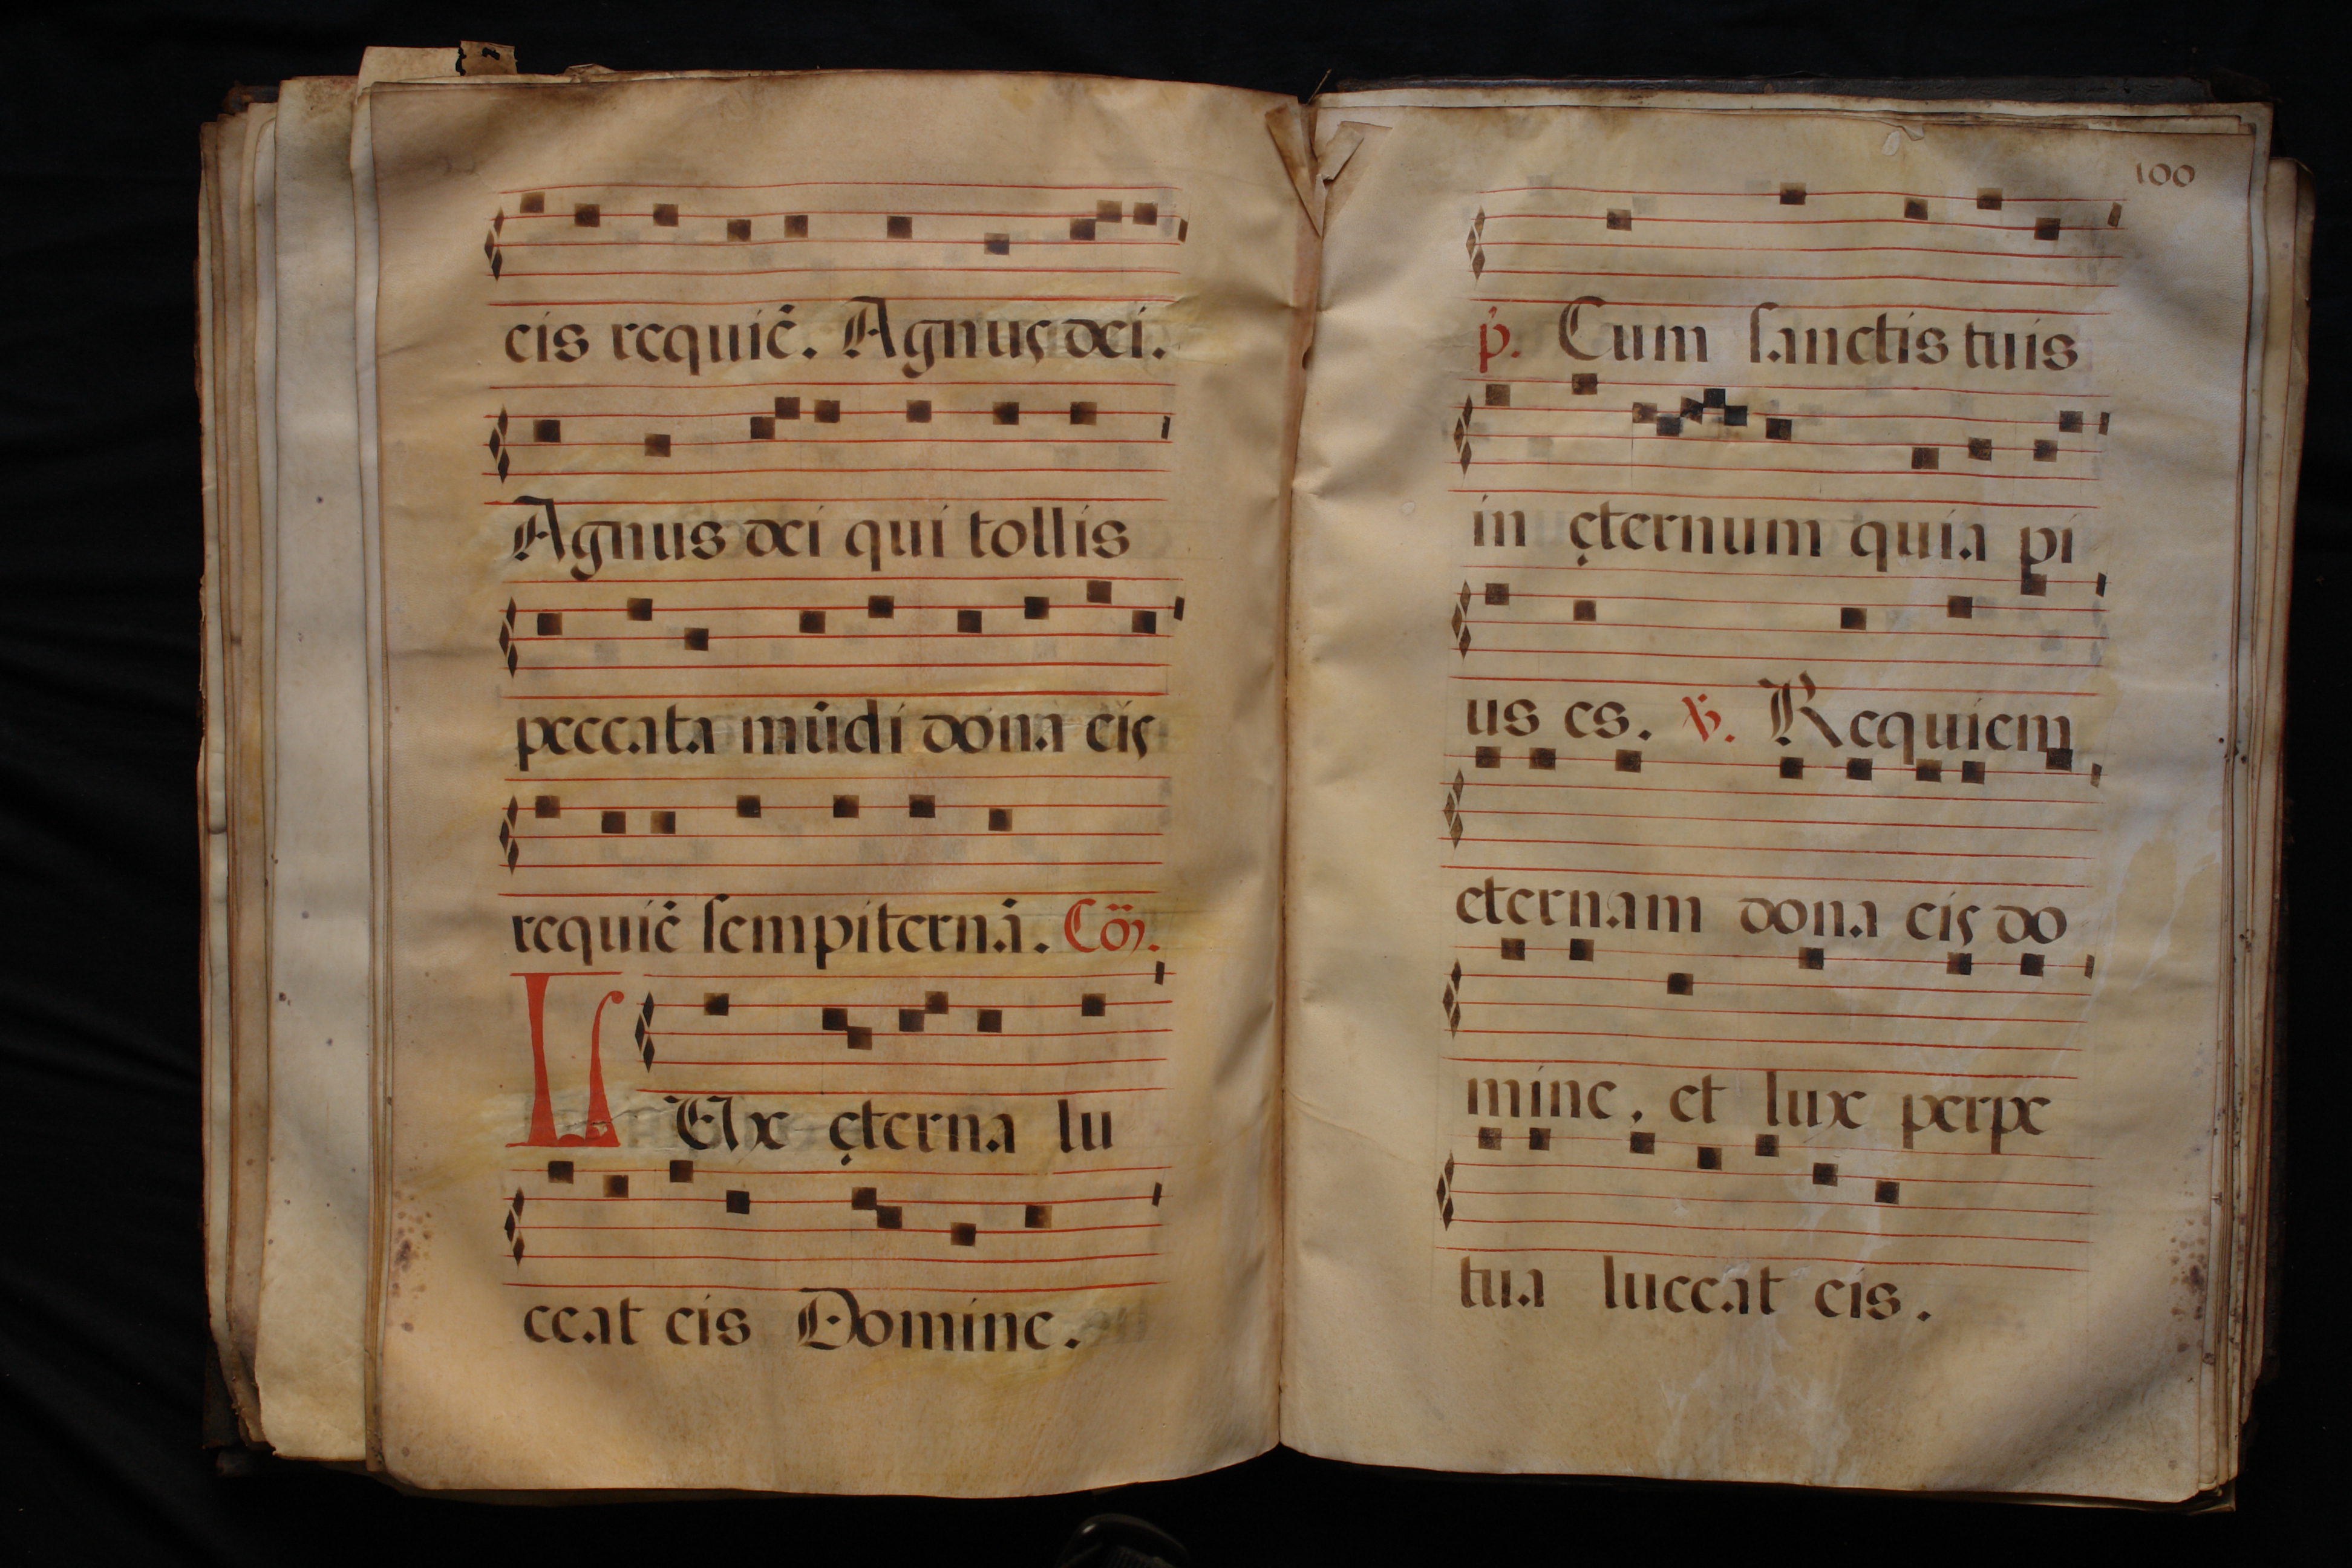 eis requiē. Agnus dei.
Agnus dei qui tollis
peccata mūdi dona eis
requiē sempiternā. Cōo.
LUx ęterna lu
ceat eis Domine.
100
p̄. Cum sanctis tuis
in ęternum quia pi
us es. ℣. Requiem
eternam dona eis do
mine, et lux perpe
tua luceat eis.